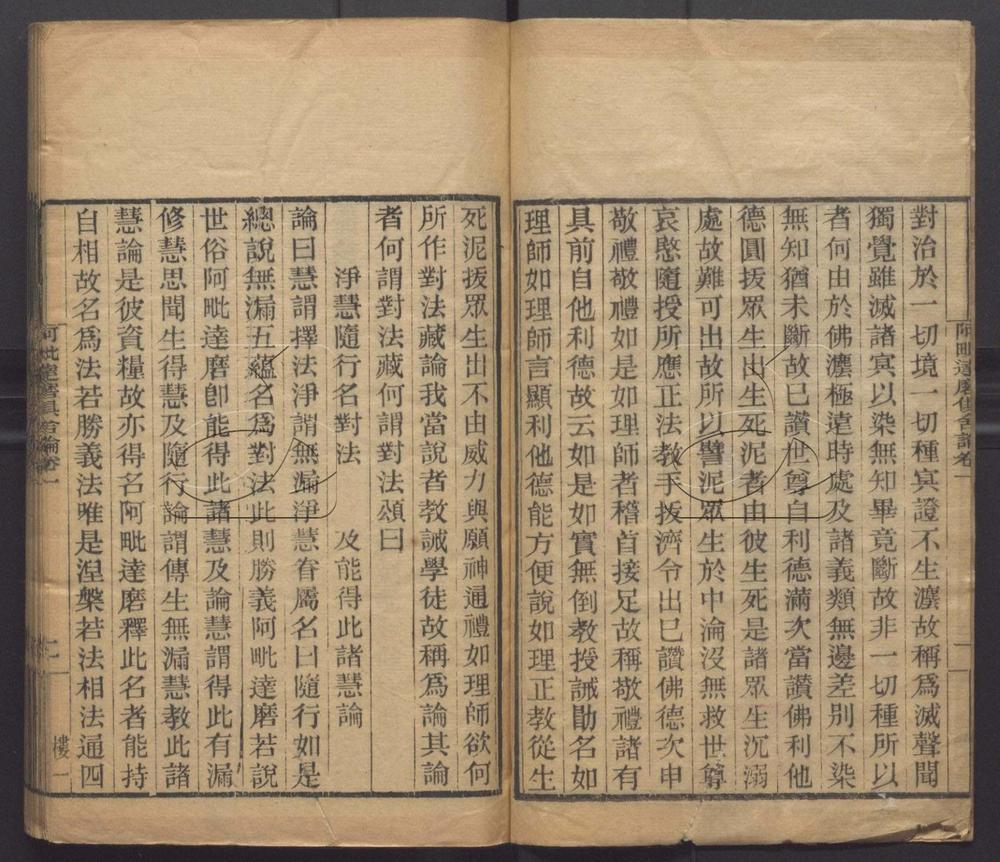 對治於一切境一切種冥證不生灋故稱爲滅聲聞
獨覺雖滅諸冥以染無知畢竟斷故非一切種所以
者何由於佛灋極遠時處及諸義類無邊差別不染
無知猶未斷故已讚世尊自利德滿次當讚佛利他
德圓拔眾生出生死泥者由彼生死是諸眾生沉溺
處故難可出故所以譬泥眾生於中淪沒無救世尊
哀愍隨授所應正法教手拔濟令出已讚佛德次申
敬禮敬禮如是如理師者稽首接足故稱敬禮諸有
具前自他利德故云如是如實無倒教授誡勖名如
理師如理師言顯利他德能方便說如理正教從生
死泥拔眾生出不由威力與願神通禮如理師欲何
所作對法藏論我當說者教誡學徒故稱爲論其論
者何謂對法藏何謂對法頌曰
淨慧隨行名對法 及能得此諸慧論
論曰慧謂擇法淨謂無漏淨慧眷屬名曰隨行如是
總說無漏五蘊名爲對法此則勝義阿毗達磨若說
世俗阿毗達磨卽能得此諸慧及論慧謂得此有漏
修慧思聞生得慧及隨行論謂傳生無漏慧教此諸
慧論是彼資糧故亦得名阿毗達磨釋此名者能持
自相故名爲法若勝義法唯是涅槃若法相法通四
阿毗達磨俱舍論卷一
二
樓一